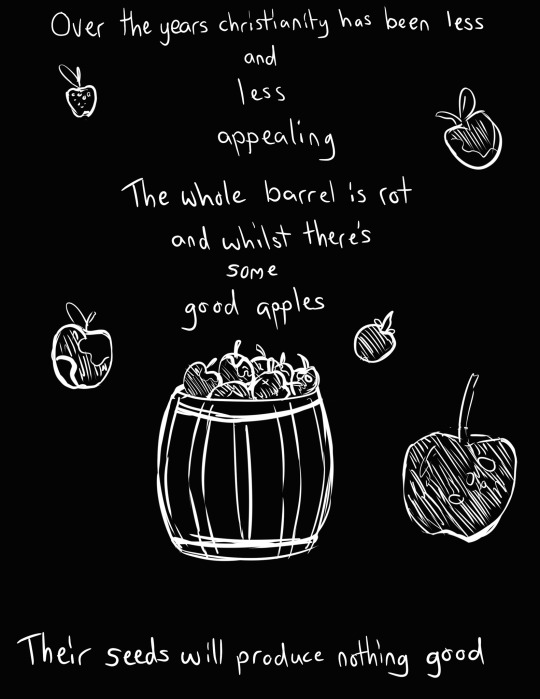 Over the years christianity has been less
and
less
appealing
The whole barrel is rot
and whilst there's
some
good apples
Their seeds will produce nothing good